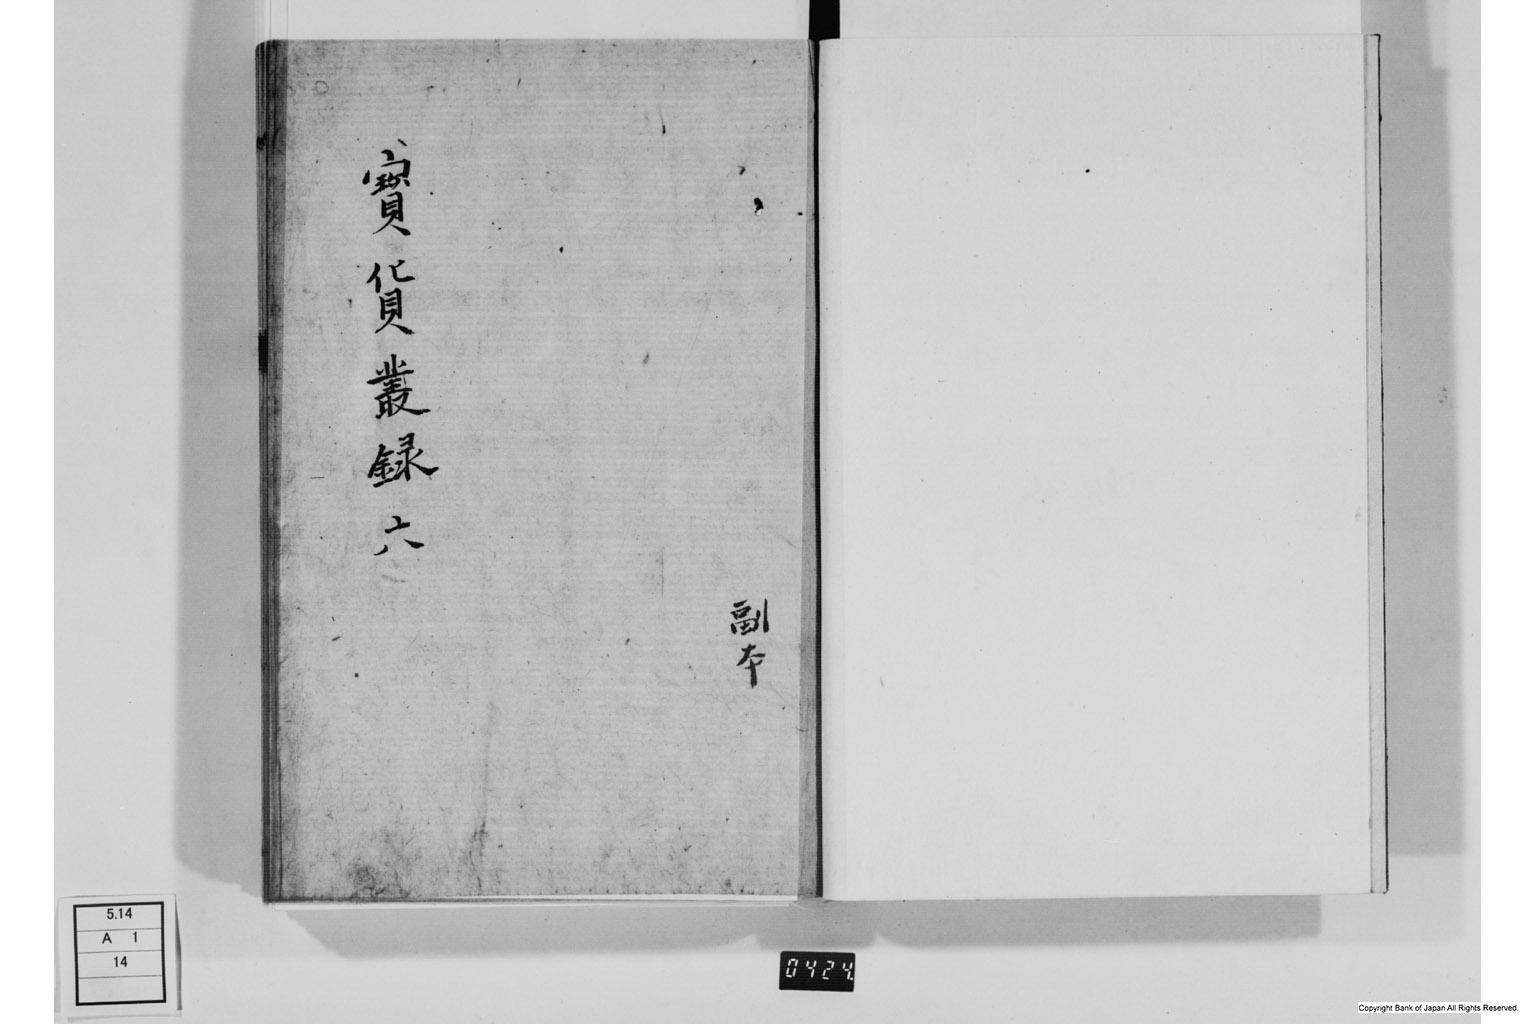 副本
寳貨叢録 六
5.14
A 1
14
0424
Copyright Bank of Japan All Rights Reserved.